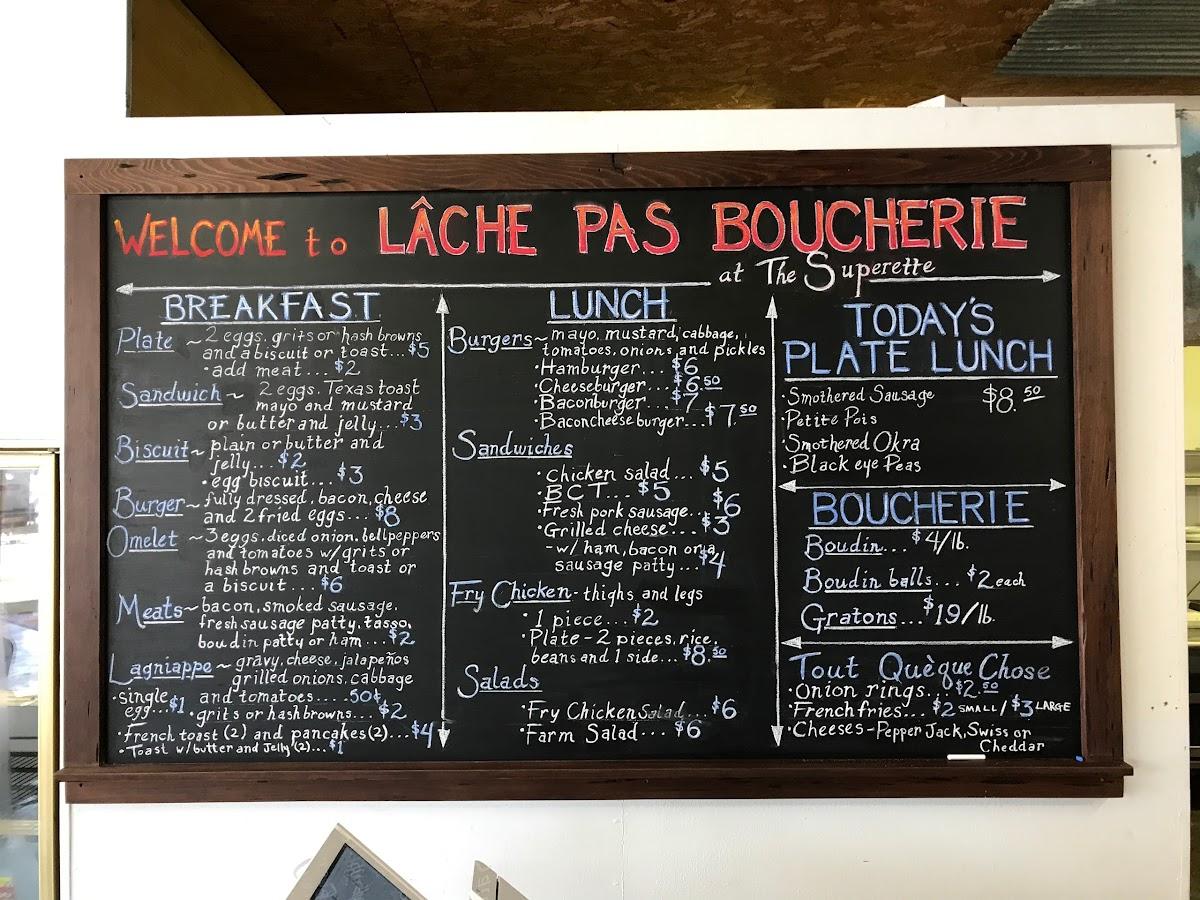 WELCOME to LÂCHE PAS BOUCHERIE
at The Superette
BREAKFAST
Plate ~ 2 eggs, grits or hash browns
and a biscuit or toast... $5
· add meat... $2
Sandwich ~ 2 eggs, Texas toast
mayo and mustard
or butter and jelly... $3
Biscuit ~ plain or butter and
jelly... $2
· egg biscuit... $3
Burger ~ fully dressed, bacon, cheese
and 2 fried eggs... $8
Omelet ~ 3 eggs, diced onion, bell peppers
and tomatoes w/ grits or
hash browns and toast or
a biscuit... $6
Meats ~ bacon, smoked sausage,
fresh sausage patty, tasso,
boudin patty or ham... $2
Lagniappe ~ gravy, cheese, jalapeños
grilled onions, cabbage
and tomatoes.... 50¢
· single egg... $1
· grits or hash browns... $2
· French toast (2) and pancakes (2)... $4
· Toast w/ butter and jelly (2)... $1
LUNCH
Burgers ~ mayo, mustard, cabbage,
tomatoes, onions and pickles
· Hamburger... $6
· Cheeseburger... $6.50
· Baconburger... $7
· Baconcheese burger... $7.50
Sandwiches
· Chicken salad... $5
· BCT... $5
· Fresh pork sausage... $6
· Grilled cheese... $3
- w/ ham, bacon or a
sausage patty... $4
Fry Chicken - thighs and legs
· 1 piece... $2
· Plate - 2 pieces, rice,
beans and 1 side... $8.50
Salads
· Fry Chicken Salad... $6
· Farm Salad... $6
TODAY'S
PLATE LUNCH
· Smothered Sausage $8.50
· Petite Pois
· Smothered Okra
· Black eye Peas
BOUCHERIE
Boudin... $4/lb.
Boudin balls... $2 each
Gratons... $19/lb.
Tout Quèque Chose
· Onion rings... $2.50
· French fries... $2 SMALL / $3 LARGE
· Cheeses - Pepper Jack, Swiss or
Cheddar